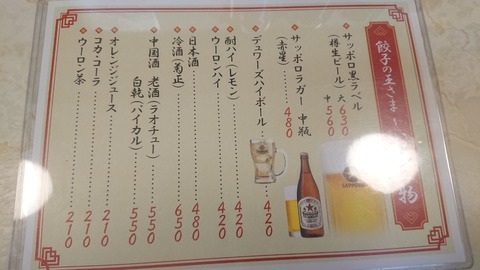 餃子の王さま
物
サッポロ黒ラベル
(樽生ビール) 大 630
中 560
サッポロラガー 中瓶
(赤星) 480
デュワーズハイボール 420
酎ハイ(レモン) 420
ウーロンハイ 420
日本酒 480
冷酒(菊正) 650
中国酒 老酒(ラオチュー) 550
白乾(パイカル) 550
オレンジジュース 210
コカ・コーラ 210
ウーロン茶 210
SAPPORO